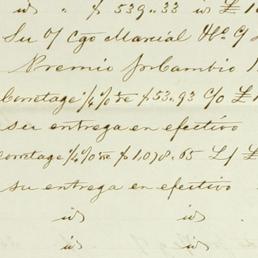 id " $ 539..33 id £ 1
Su o/ Cgo Marcial
Premio por Cambio
Corretage ¼ % de $ 53.93 c/o £ 1
su entrega en efectivo
Corretage ¼ % de $ 1,078.65 L/ £
su entrega en efectivo
id id
id id